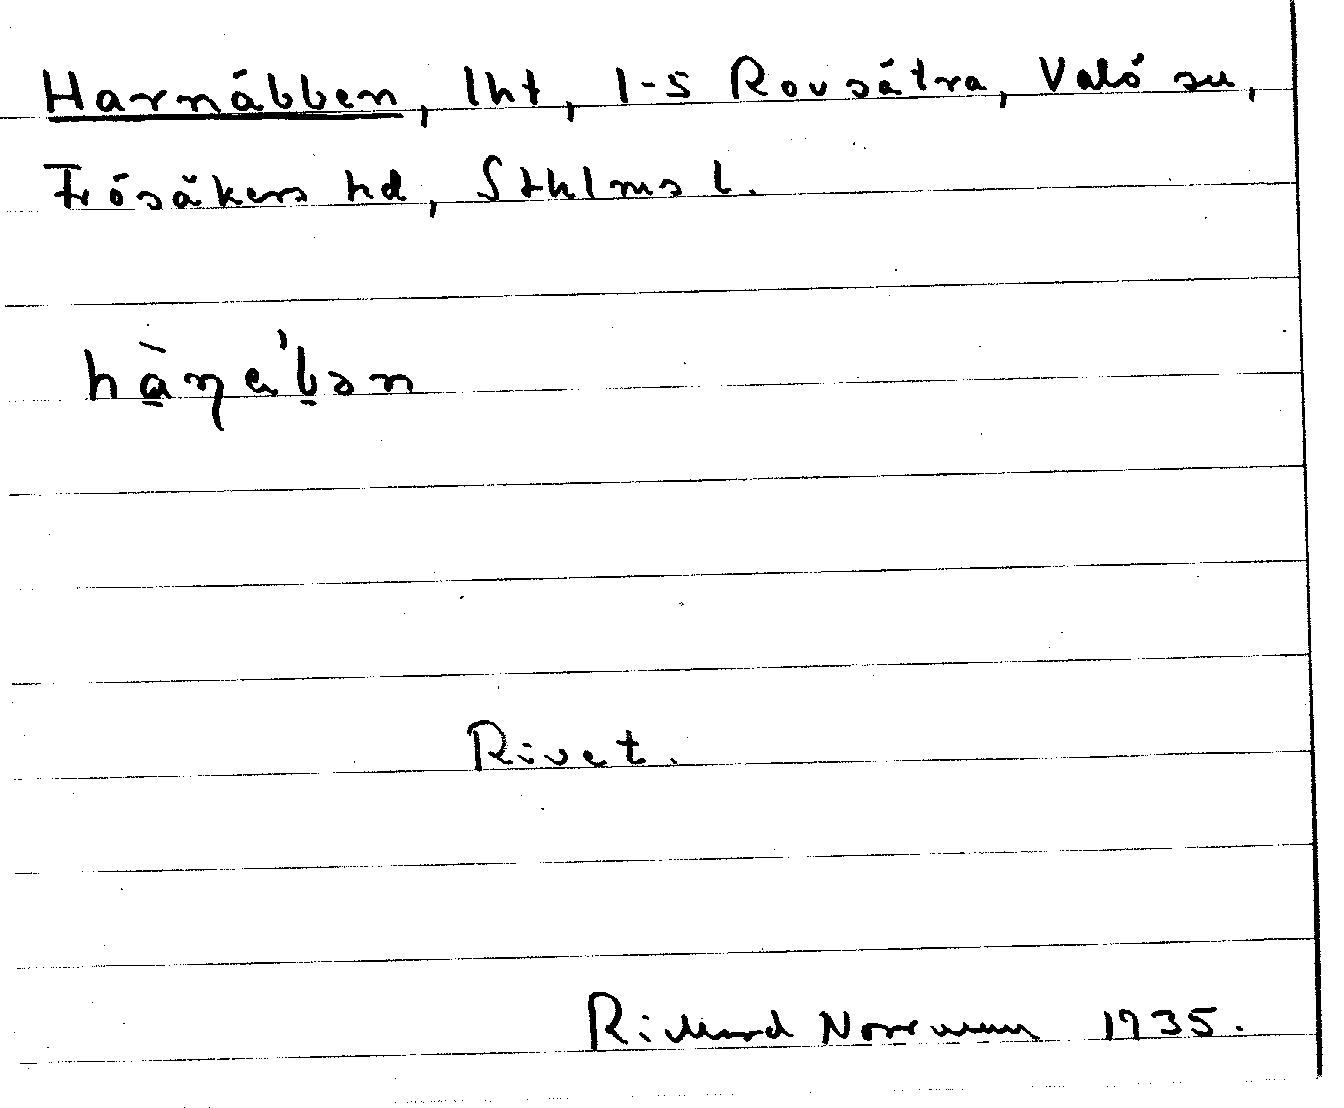 Harnäbben, lht, 1-5 Rovsätra, Valö sn,
Frösåkers hd, Sthlms l.
Rivet.
Rickard Norrman 1935.